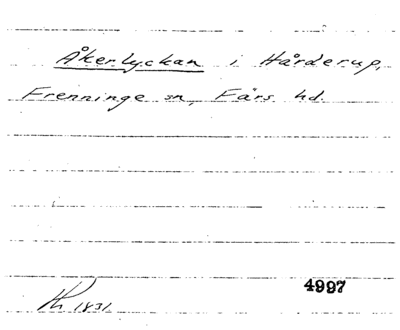 Åkerlyckan i Hårderup,
Frenninge sn, Färs hd.
4997
1831